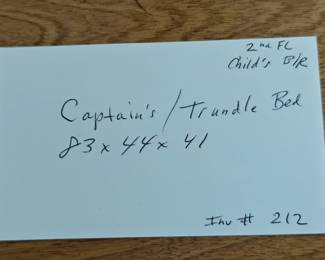 2nd FL
Child's B/R
Captain's / Trundle Bed
83 x 44 x 41
Inv # 212